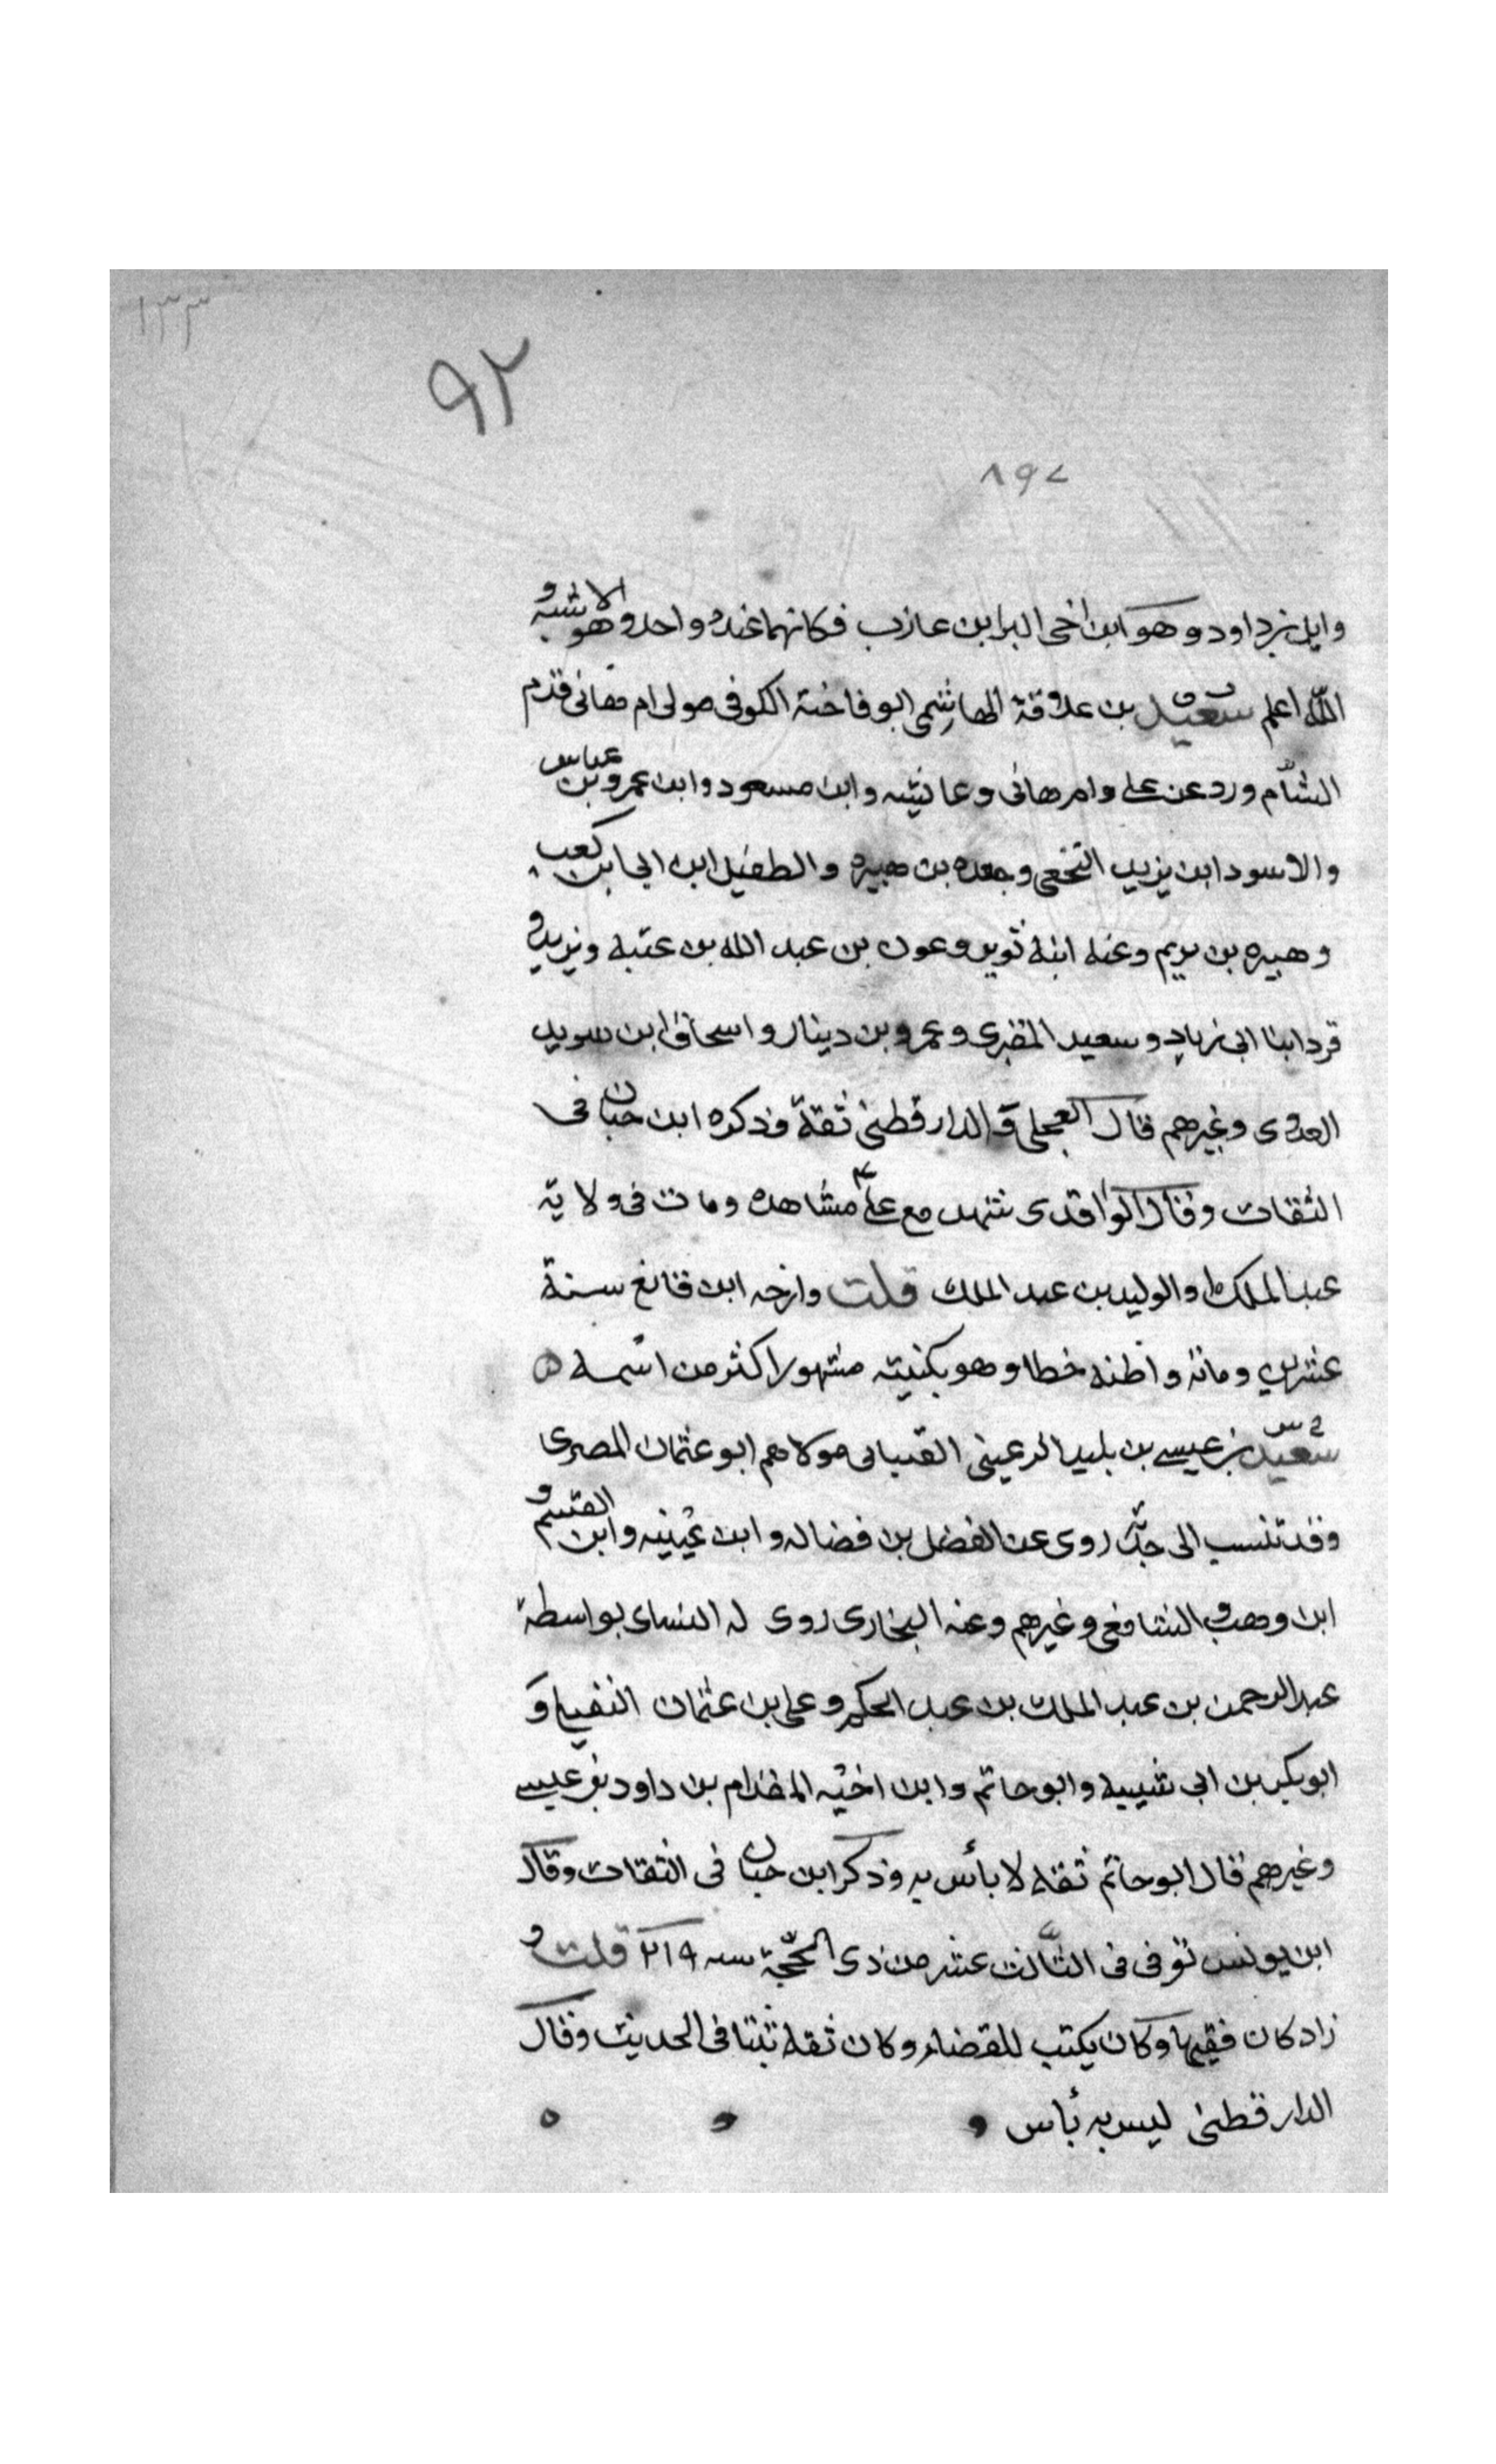 ١٣٣
٩٢
٨٩٢
وايل بن داود وهو ابن اخى البرا بن عازب فكانهما عنده واحد وهو الاشبه و
الله اعلم سعيد بن علاقة الهاشمى ابو فاختة الكوفى مولى ام هانى قدم
الشام ورد عن على وام هانى وعائيشه وابن مسعود وابن عمر وبن عباس
والاسود ابن يزيد النخعى وجعده بن هبيره والطفيل ابن ابى ابن كعب
وهبيره بن يريم وعنه ابنه ثوير وعون بن عبد الله بن عتبه ويزيد و
قردابنا ابى زياد وسعيد المقبرى وعمرو بن دينار واسحاق ابن سويد
العدوى وغيرهم قال العجلى و الدارقطنى ثقة وذكره ابن حبان فى
الثقات وقال الواقدى شهد مع على مشاهده ومات فى ولاية
عبد الملك او الوليد بن عبد الملك قلت وارخه ابن قانع سنة
عشرين ومائه واظنه خطا وهو بكنيته مشهور اكثر من اسمه ه
خ س
سعيد بن عيسى بن بليد الرعينى القتبانى مولاهم ابو عثمان المصرى
وقد تنسب الى جده روى عن الفضل بن فضاله وابن عيينه وابن القسم و
ابن وهب والشافعى وغيرهم وعنه البخارى روى له النساى بواسطة
عبد الرحمن بن عبد الملك بن عبد الحكم وعلى بن عثمان النفيلى و
ابو بكر بن ابى شيبه وابو حاتم وابن اخيه المقدام بن داود بن عيسى
وغيرهم قال ابو حاتم ثقه لا بأس به وذكر ابن حبان فى الثقات وقال
ابن يونس توفى فى الثالث عشر من ذى الحجة سنه ٢١٩ قلت و
زاد كان فقيها وكان يكتب للقضاء وكان ثقه ثبتا فى الحديث وقال
الدارقطنى ليس به بأس